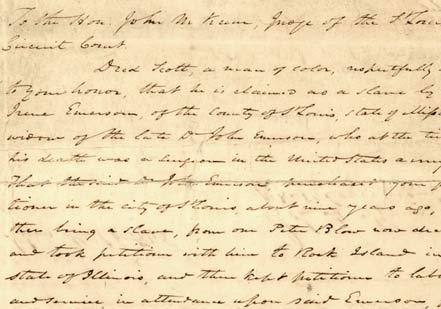 To the Hon. John M. Krum, Judge of the St Loui
Circuit Court
Dred Scott, a man of color, respectfully
to your honor, that he is claimed as a slave by
Irene Emerson, of the County of St Louis, state of Miss
widow of the late Dr John Emerson, who at the ti
his death was a surgeon in the United States army
That the said Dr John Emerson purchased your p
tioner in the city of St Louis, about nine years ago,
then being a slave, from one Peter Blow now dec
and took petitioner with him to Rock Island in
state of Illinois, and there kept petitioner to lab
and service, in attendance upon said Emerson,